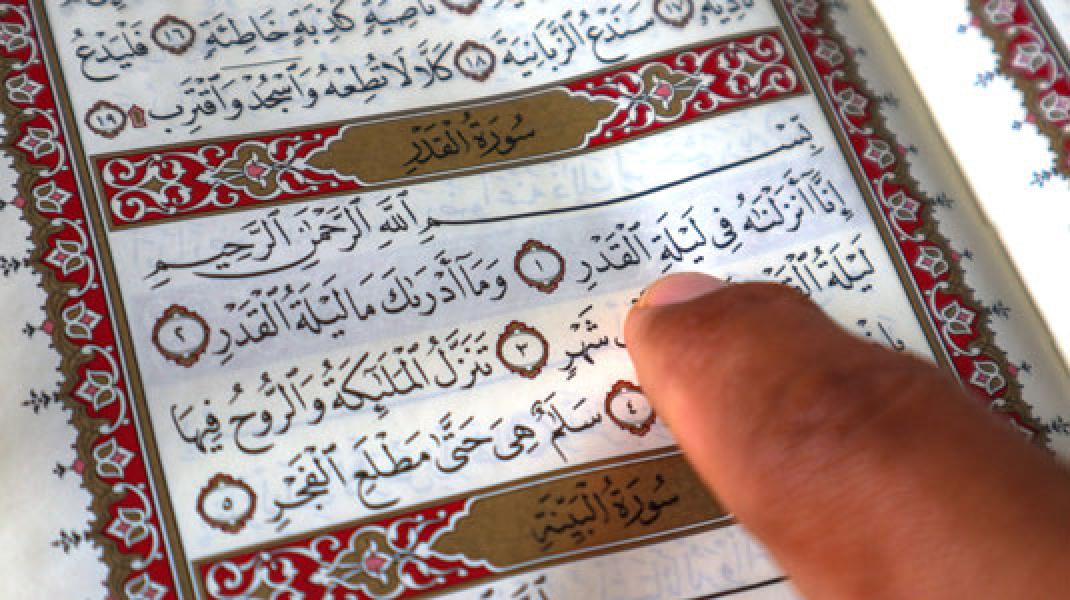 نَاصِيَةٍ كَٰذِبَةٍ خَاطِئَةٍ ١٦ فَلْيَدْعُ
نَادِيَهُۥ ١٧ سَنَدْعُ ٱلزَّبَانِيَةَ ١٨ كَلَّا لَا تُطِعْهُ وَٱسْجُدْ وَٱقْتَرِب ۩ ١٩
سُورَةُ الْقَدْرِ
بِسْمِ ٱللَّهِ ٱلرَّحْمَٰنِ ٱلرَّحِيمِ
إِنَّآ أَنزَلْنَٰهُ فِى لَيْلَةِ ٱلْقَدْرِ ١ وَمَآ أَدْرَىٰكَ مَا لَيْلَةُ ٱلْقَدْرِ ٢
لَيْلَةُ شَهْرٍ ٣ تَنَزَّلُ ٱلْمَلَٰٓئِكَةُ وَٱلرُّوحُ فِيهَا
٤ سَلَٰمٌ هِىَ حَتَّىٰ مَطْلَعِ ٱلْفَجْرِ ٥
سُورَةُ الْبَيِّنَةِ